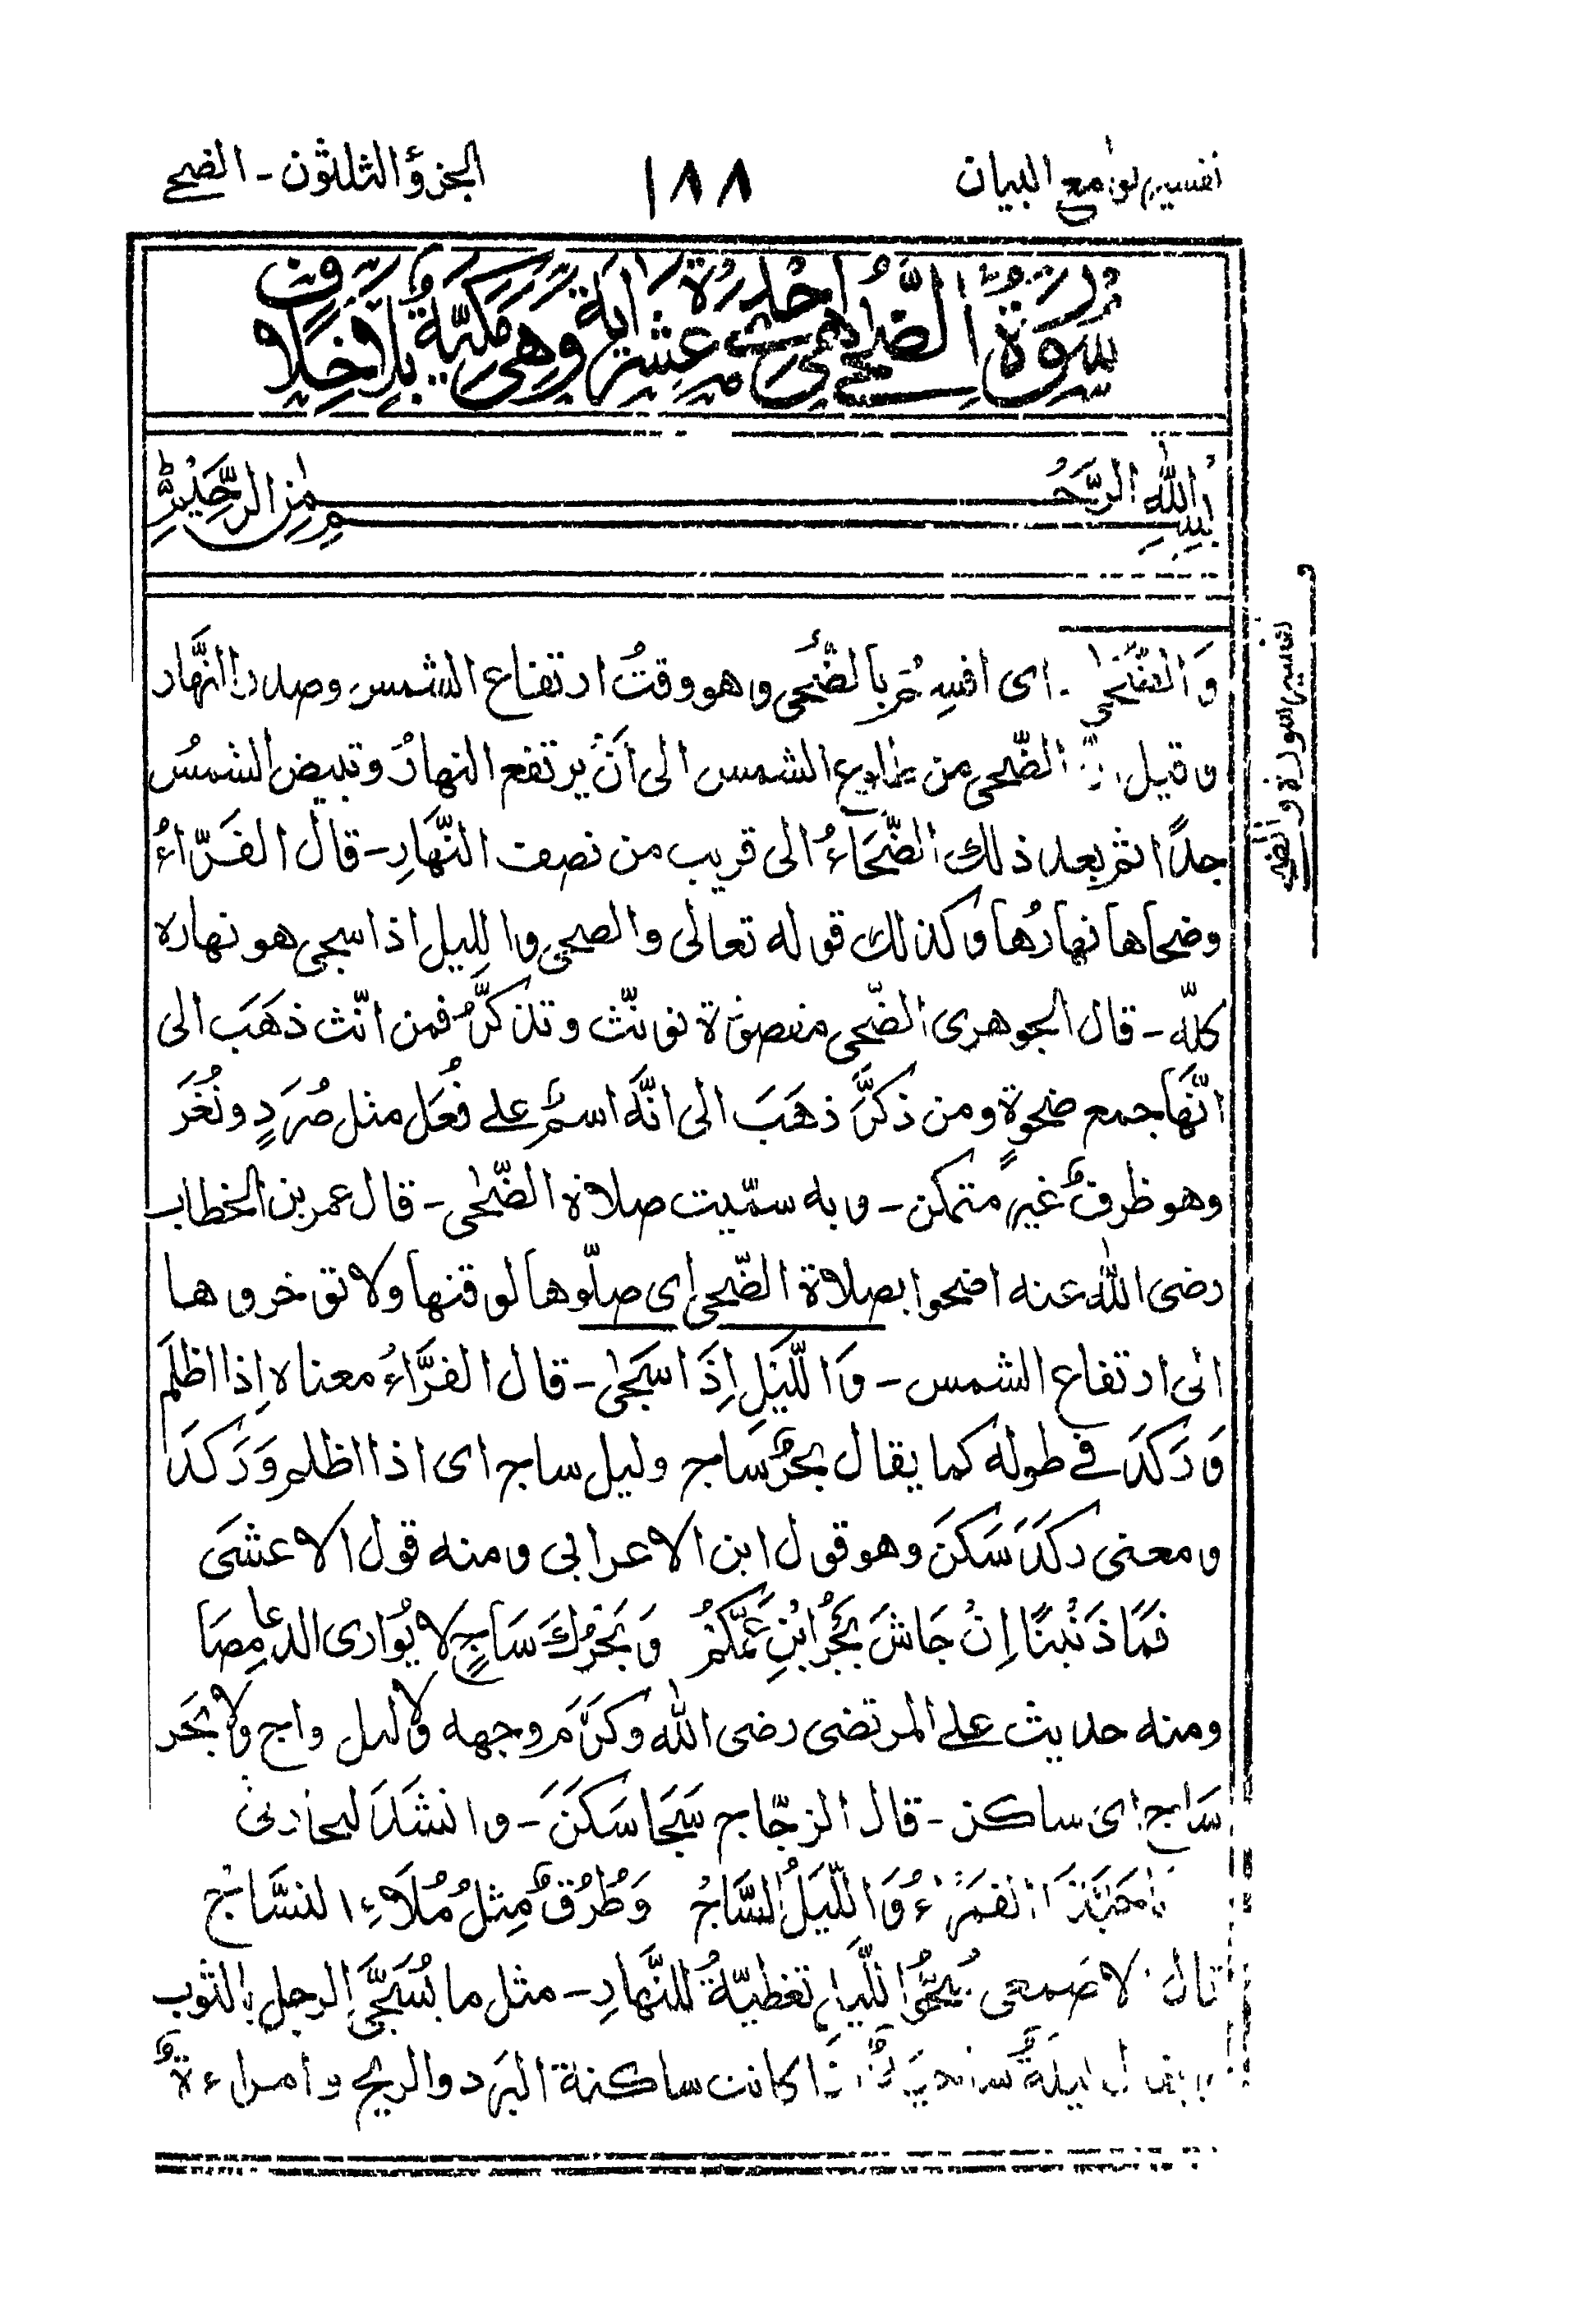 تفسير لوامع البيان ١٨٨ الجزؤ الثلثون - الضحى
سُوْرَةُ الضُّحٰى هِيَ اِحْدٰى عَشْرَةَ اٰيَةً وَهِيَ مَكِّيَّةٌ بِلَا خِلَافٍ
بِسْمِ اللّٰهِ الرَّحْمٰنِ الرَّحِيْمِ
تفسير سورة والضحى
وَالضُّحٰى - اى اقسِمُ بالضُّحى وهو وقتُ ارتفاع الشمس وصدر النَّهار
وقيل الضّحى من طلوع الشمس الى اَنْ يرتفع النهارُ وتبيض الشمسُ
جدًا ثم بعد ذلك الضَّحَاءُ الى قريب من نصف النَّهَارِ - قال الفَرّاءُ
وضحاها نهارُها وكذلك قوله تعالى والضحى والليل اذا سجى هو نهاره
كلّه - قال الجوهرى الضّحى مقصورة تؤنّث وتذكَّر فمن انّث ذهَبَ الى
انّهَا جمع ضحوةٍ ومن ذكرَّ ذهَبَ الى انَّه اسمٌ على فُعَل مثل صُرَدٍ ونُغَرَ
وهو ظرفٌ غير متمكن - وبه سمّيت صلاة الضّحٰى - قال عمر بن الخطاب
رضى اللّٰه عنه اضحوا بصلاة الضّحى اى صلّوها لوقتها ولا تؤخروها
الى ارتفاع الشمس - وَالَّليَلِ اِذَا سَجٰى - قال الفَرَّاءُ معناه اِذا اظلَم
وَرَكَدَ فى طوله كما يقال بحرٌ سَاج وليل ساج اى اذا اظلم وَرَكَدَ
ومعنى ركَدَ سَكَنَ وهو قول ابن الاعرابى ومنه قول الاعشَى
فَمَا ذَنْبُنَا اِنْ جَاشَ بَحْرُ ابْنِ عَمِّكُمْ وَبَحْرُكَ سَاجٍ لَا يُوَارى الدعامِصَا
ومنه حديث على المرتضى رضى اللّٰه وكرَّم وجهه ولا ليل داج ولا بَحر
سَاج اى ساكن - قال الزجّاج سَجَا سَكَنَ - وانشَدَ لحادٍ
يَا حَبَّذَا القَمْرَاءُ وَاللَّيْلُ السَّاجْ وَطُرُقٌ مِثلُ مُلَاءِ النسَّاجْ
قال الاصَمعى سُجُوُّ اللَّيل تغطيّةُ للنَّهارِ - مثل ما يُسَجَّى الرجل بالثوب
ويقال ليلةٌ كانت ساكنة البَرد والريح وامراءةٌ